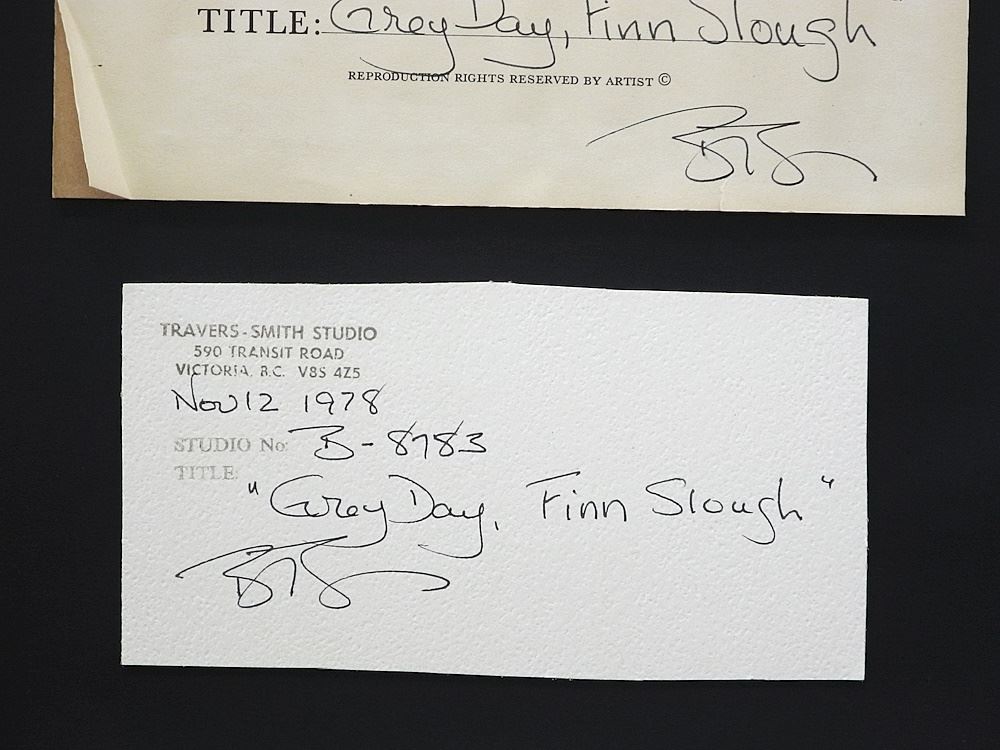 TITLE: Grey Day, Finn Slough"
REPRODUCTION RIGHTS RESERVED BY ARTIST ©
TRAVERS-SMITH STUDIO
590 TRANSIT ROAD
VICTORIA, B.C. V8S 4Z5
Nov 12 1978
STUDIO No: B-8783
TITLE:
"Grey Day, Finn Slough"